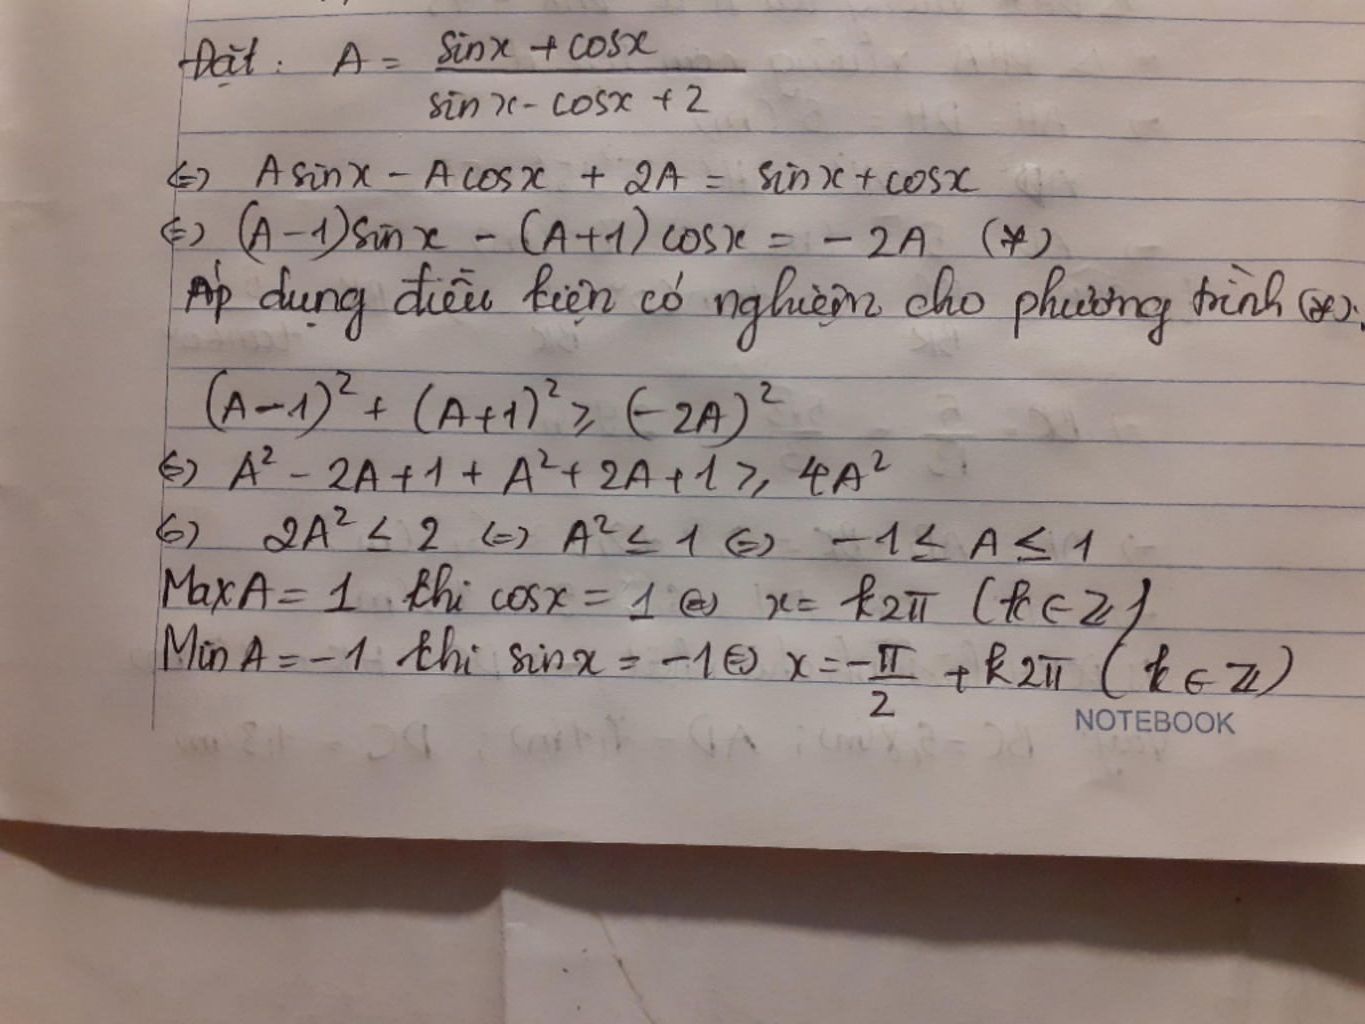 Đặt: A = (sinx + cosx)/(sinx - cosx + 2)
<=> Asinx - Acosx + 2A = sinx + cosx
<=> (A-1)sinx - (A+1)cosx = -2A (*)
Áp dụng điều kiện có nghiệm cho phương trình (*):
(A-1)² + (A+1)² ≥ (-2A)²
<=> A² - 2A + 1 + A² + 2A + 1 ≥ 4A²
<=> 2A² ≤ 2 <=> A² ≤ 1 <=> -1 ≤ A ≤ 1
Max A = 1 khi cosx = 1 <=> x = k2π (k ∈ Z)
Min A = -1 khi sinx = -1 <=> x = -π/2 + k2π (k ∈ Z)
NOTEBOOK